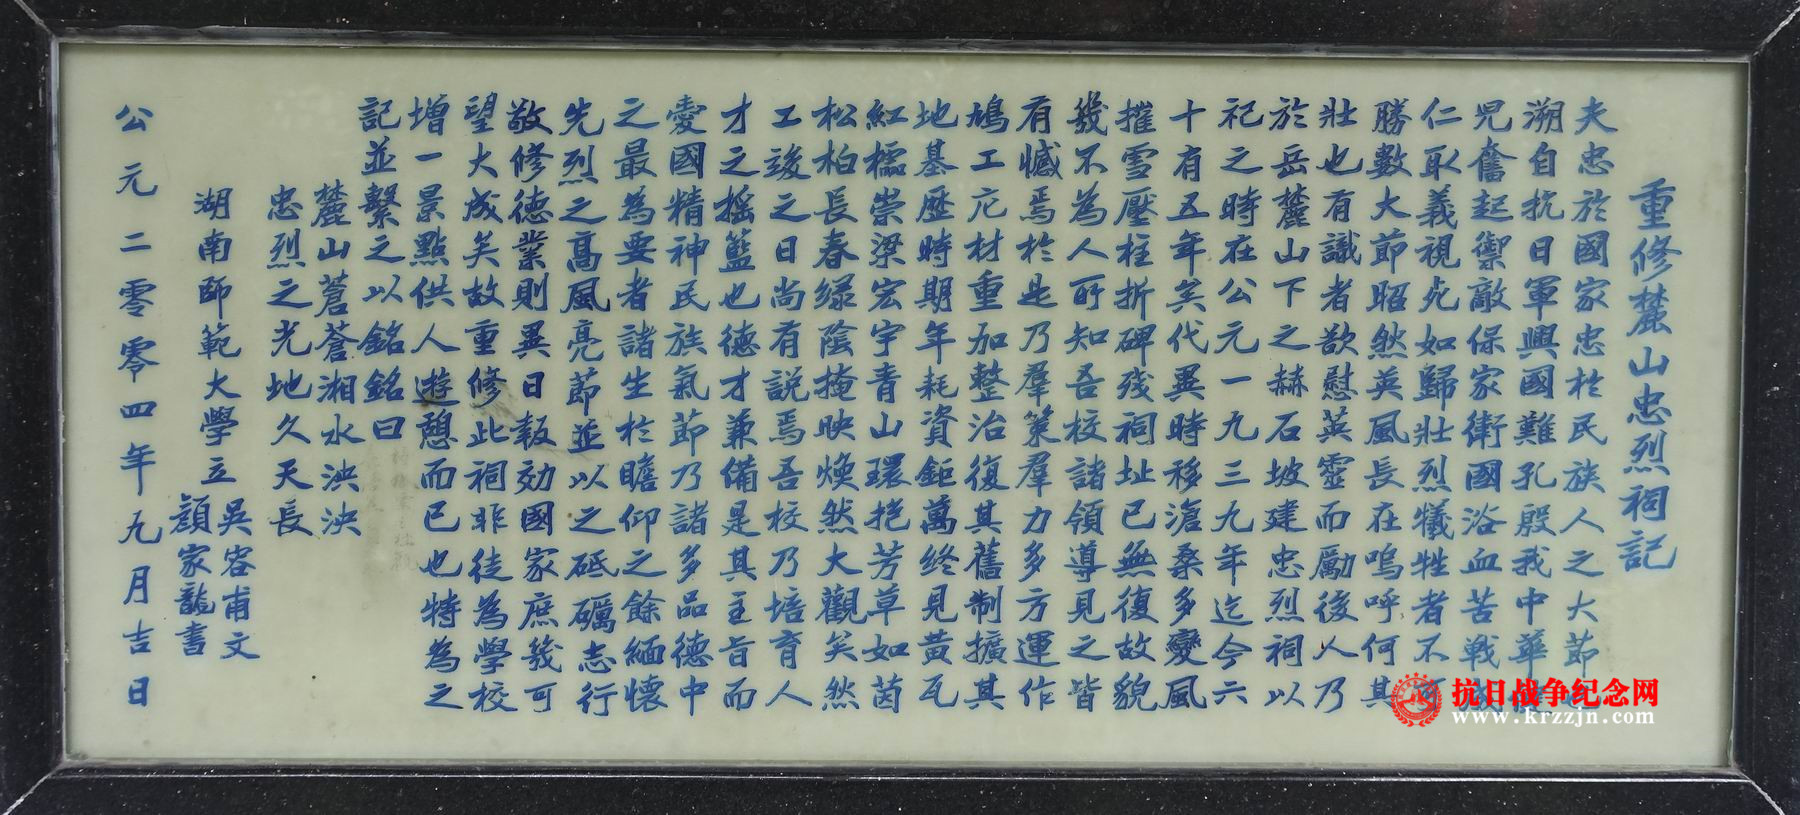 重修麓山忠烈祠記
夫忠於國家忠於民族人之大節也
溯自抗日軍興國難孔殷我中華
兒奮起禦敵保家衛國浴血苦戰成
仁取義視死如歸壯烈犧牲者不可
勝數大節昭然英風長在嗚呼何其
壯也有識者欲慰英靈而勵後人乃
於岳麓山下之赫石坡建忠烈祠以
祀之時在公元一九三九年迄今六
十有五年矣代異時移滄桑多變風
摧雪壓柱折碑殘祠址已無復故貌
幾不為人所知吾校諸領導見之皆
有憾焉於是乃羣策羣力多方運作
鳩工庀材重加整治復其舊制擴其
地基歷時期年耗資鉅萬終見黃瓦
紅櫺崇梁宏宇青山環抱芳草如茵
松柏長春綠陰掩映煥然大觀矣然
工竣之日尚有說焉吾校乃培育人
才之搖籃也德才兼備是其主旨而
愛國精神民族氣節乃諸多品德中
之最為要者諸生於瞻仰之餘緬懷
先烈之高風亮節並以之砥礪志行
敬修德業則異日報効國家庶幾可
望大成矣故重修此祠非徒為學校
增一景點供人遊憩而已也特為之
記並繫之以銘銘曰
麓山蒼蒼湘水泱泱
忠烈之光地久天長
湖南師範大學立
吳容甫文
顏家龍書
公元二零零四年九月吉日
抗日战争纪念网
www.krzzjn.com